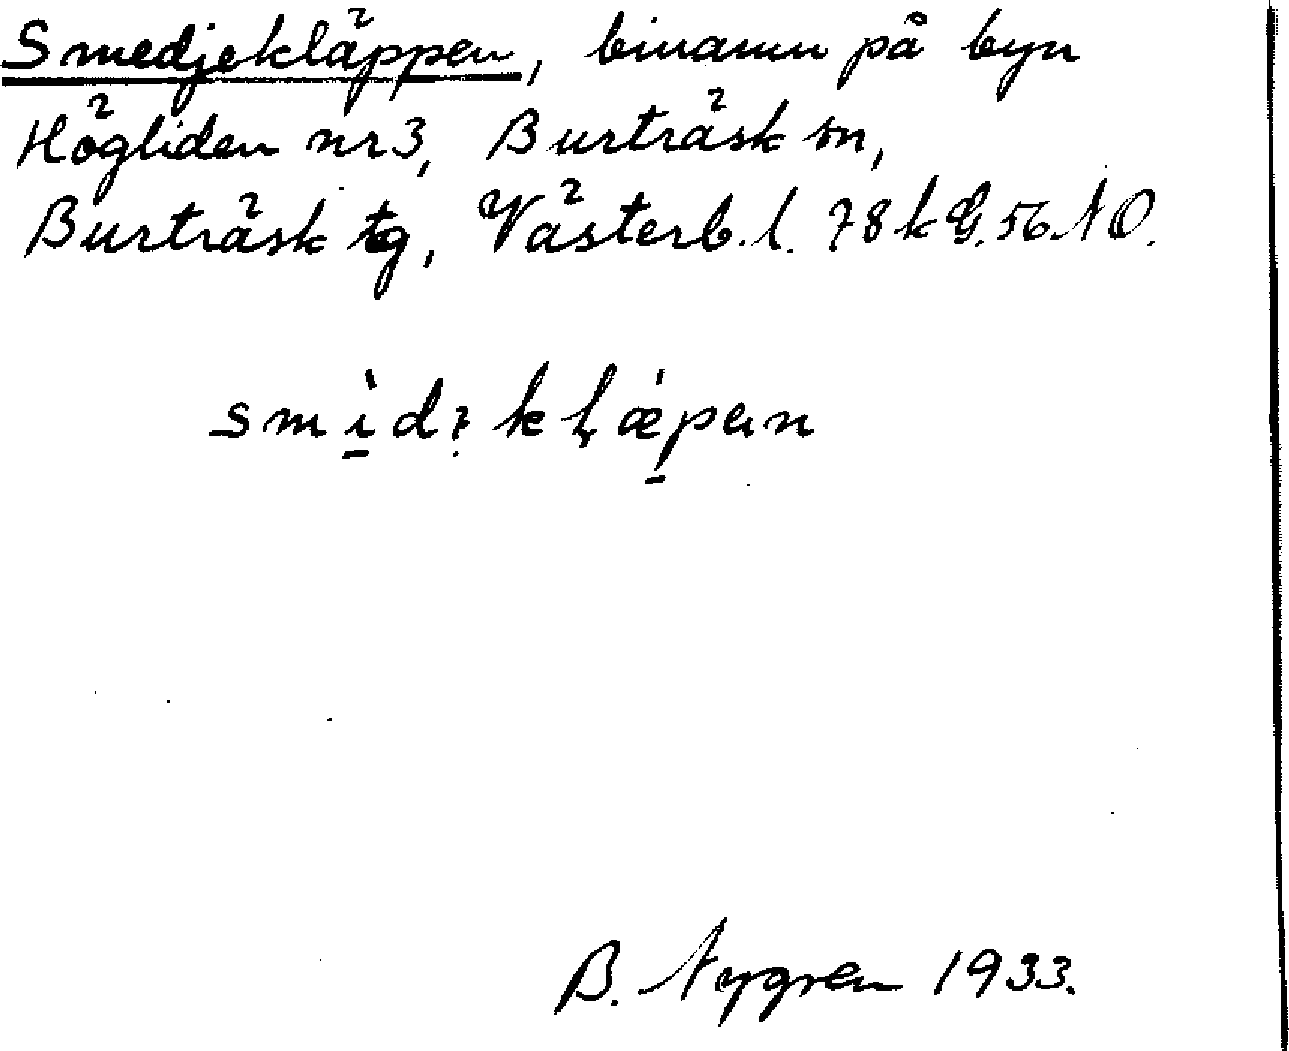 Smedjekläppen, binamn på byn
Högliden nr 3, Burträsk sn,
Burträsk tg, Västerb. l. 78 k G. 56 NO.
B. Nygren 1933.